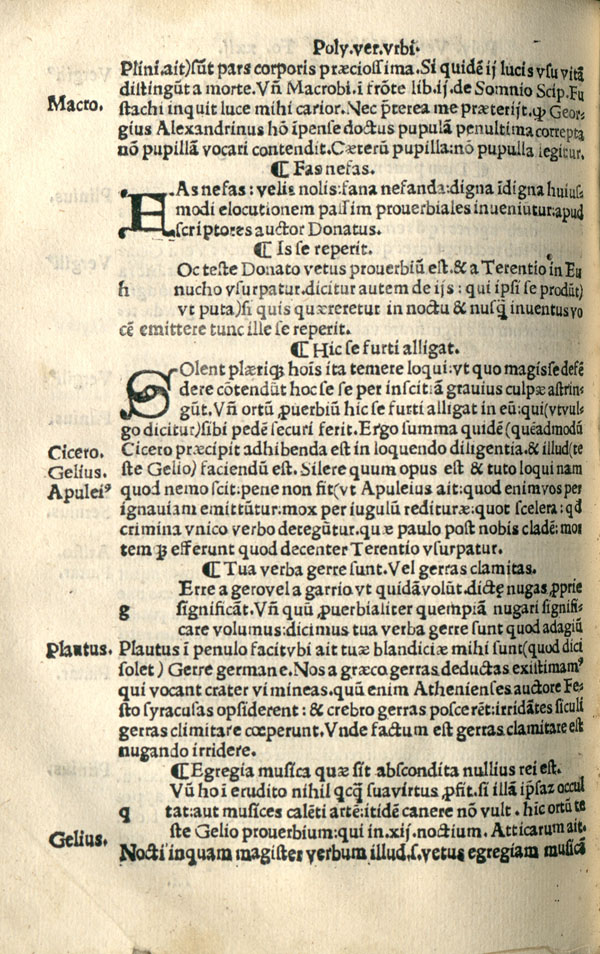 Poly.ver.vrbi.
Plini.ait)sūt pars corporis præciosſima. Si quidē ij lucis vſu vitā
diſtingūt a morte. Vñ Macrobi.ī frōte lib.ij.de Somnio Scip. Eu
Macro.
ſtachi inquit luce mihi carior. Nec p̄terea me præterijt. ꝙ Geor
gius Alexandrinus hō īpenſe doctus pupulā penultima correpta
nō pupillā vocari contendit. Cæterū pupilla: nō pupulla legitur.
¶ Fas nefas.
FAs nefas: velis nolis: fana nefanda: digna īdigna huiuſ-
modi elocutionem paſſim prouerbiales inueniūtur: apud
ſcriptores auctor Donatus.
¶ Is ſe reperit.
Oc teſte Donato vetus prouerbiū eſt.& a Terentio in Eu
h
nucho vſurpatur. dicitur autem de ijs: qui ipſi ſe produt)
vt puta)ſi quis quæreretur in noctu & nuſq̄ inuentus vo
cē emittere tunc ille ſe reperit.
¶ Hic ſe furti alligat.
SOlent plæriqꝫ hoīs ita temere loqui: vt quo magis ſe defē
dere cōtendūt hoc ſe ſe per inſcitiā grauius culpæ aſtrin-
gūt. Vñ ortū ꝓuerbiū hic ſe furti alligat in eū: qui(vt vul-
go dicitur)ſibi pedē ſecuri ferit. Ergo ſumma quidē(quēadmodū
Cicero.
Cicero præcipit adhibenda eſt in loquendo diligentia.& illud(te
Gelius.
ſte Gelio) faciendū eſt. Silere quum opus eſt & tuto loqui nam
Apuleiꝰ
quod nemo ſcit: pene non fit(vt Apuleius ait: quod enim vos per
ignauiam emittūtur: mox per iugulū redituræ: quot ſcelera: qđ
crimina vnico verbo detegūtur. quæ paulo poſt nobis cladē: mor
tem qꝫ efferunt quod decenter Terentio vſurpatur.
¶ Tua verba gerre ſunt. Vel gerras clamitas.
Erre a gero vel a garrio vt quidā volūt. dictę nugas ꝓprie
g
ſignificāt. Vñ quū ꝓuerbialiter quempiā nugari ſignifi-
care volumus: dicimus tua verba gerre ſunt quod adagiū
Plautus.
Plautus ī penulo facit vbi ait tuæ blandiciæ mihi ſunt(quod dici
ſolet) Gerre germane. Nos a græco gerras deductas exiſtimamꝰ
qui vocant crater vimineas. quū enim Athenienſes auctore Fe-
ſto ſyracuſas opſiderent: & crebro gerras poſcerēt: irridātes ſiculi
gerras climitare cœperunt. Vnde factum eſt gerras clamitare eſt
nugando irridere.
¶ Egregia muſica quæ ſit abſcondita nullius rei eſt.
Vñ hoī erudito nihil qcq̄ ſua virtus ꝓfit. ſi illā ipſaꝫ occul
q
tat: aut muſices calēti artē: itidē canere nō vult. hic ortū te
Gelius.
ſte Gelio prouerbium: qui in.xij.noctium. Atticarum ait.
Nocti inquam magiſter verbum illud.ſ.vetus egregiam muſicā